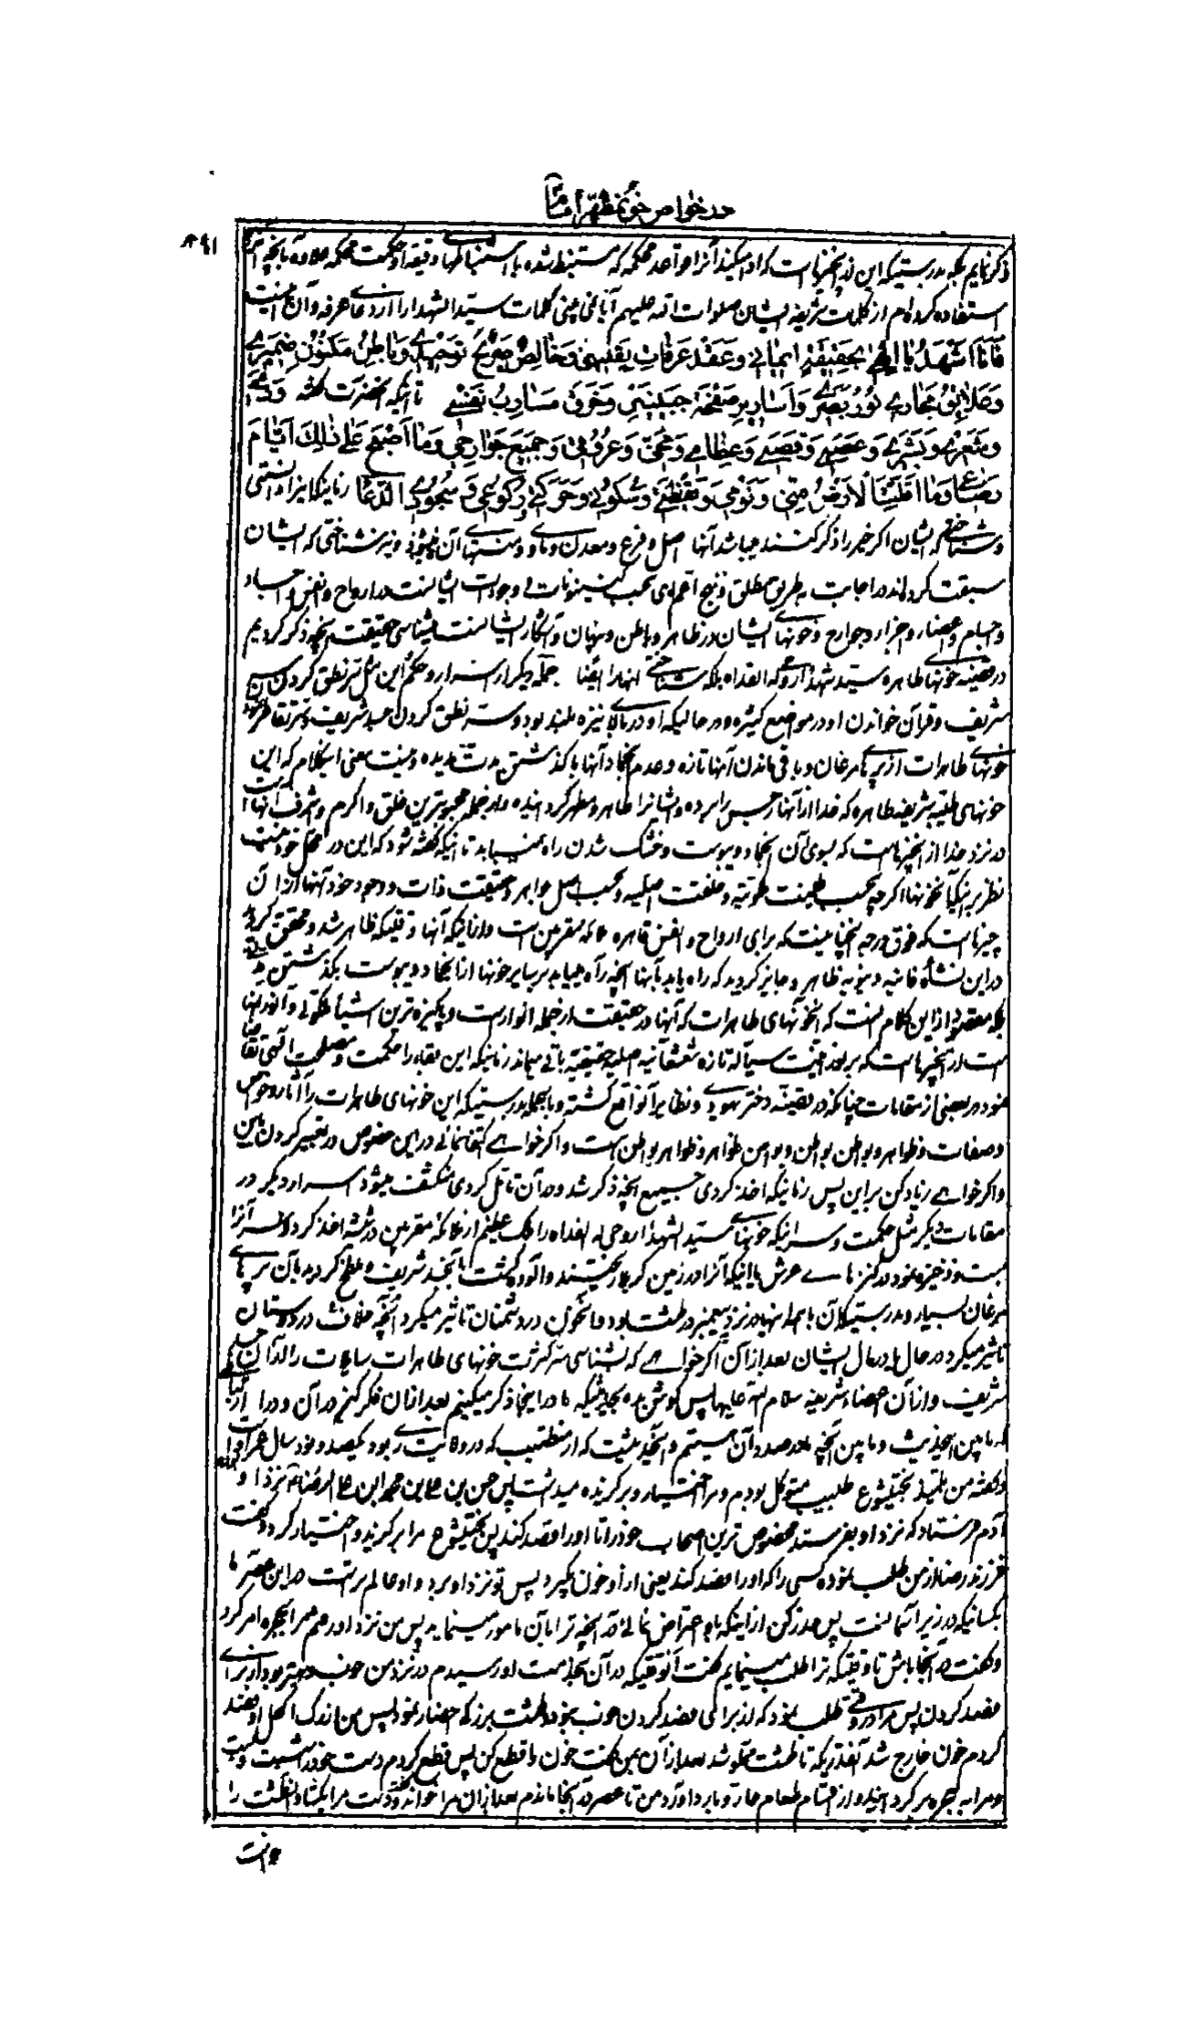 در خواص خون مطهر امامان
ذکر نمایم بلکه بدرستیکه این از چیزهائیست که اداء میکند آنرا قواعد محکمه که مستنبط شده با استنباطهای دقیقه و حکمت محکمه علاوه بآنچه
استفاده کرده‌ام از کلمات شریفه ایشان صلوات الله علیهم آیا نمی‌بینی کلمات سید الشهدا را از دعاء عرفه و آن اینست
فَاَنَا اَشْهَدُ یا اِلهی بِحَقیقَةِ ایمانی وَعَقْدِ عَزَماتِ یَقینی وَخالِصِ صَریحِ تَوحیدی وَباطِنِ مَکْنُونِ ضَمیری
وَعَلائِقِ مَجاری نُورِ بَصَری وَاَساریرِ صَفْحَةِ جَبینی وَخَرْقِ مَسارِبِ نَفْسی تا اینکه آنحضرت گفته وَدَمی
وَشَعْری وَبَشَری وَعَصَبی وَقَصَبی وَعِظامی وَمُخّی وَعُرُوقی وَجَمیعِ جَوارِحی وَمَا انْتَسَجَ عَلی ذلِکَ اَیّامَ
رِضاعی وَما اَقَلَّتِ الْاَرْضُ مِنّی وَنَوْمی وَیَقْظَتی وَسُکُونی وَحَرَکَتی وَرُکُوعی وَسُجُودی الدعا زمانیکه این را دانستی
و شناختی که ایشان اگر خیر را ذکر کنند میباشد آنها اصل و فرع و معدن و ماوی و منتهای آن میشود و نیز شناختی که ایشان
سبقت کرده‌اند در اجابت به طریق مطلق و نهج اقوم ای بحسب کینونات و وجودات ایشانست در ارواح و انفس و اجساد
و اجسام و اعضاء و اجزاء و جوارح و خونهای ایشان در ظاهر و باطن و نهان و آشکار ایشانست میشناسی حقیقت آنچه ذکر کردیم
در قضیه خونهای طاهره سید شهدا روحی له الفداء بلکه شناختی اینها را ایضا جمله دیگر از اسرار و حکم این مثل سر نطق کردن رأس
شریف و قرآن خواندن او در مواضع کثیره و در حالیکه او در بالای نیزه بلند بود و سر نطق کردن جسد شریف و سر تقاطر
خونهای طاهرات از پرهای مرغان و باقی ماندن آنها تازه و عدم انجماد آنها با گذشتن مدت مدیده و نیست معنی این کلام که این
خونهای طیبه شریفه طاهره که خدا از آنها رجس را برده و ایشانرا طاهر و مطهر گردانیده و از جمله محبوبترین خلق و اکرم و اشرف آنهاست
در نزد خدا از چیزهاست که بسوی آن انجماد و یبوست و خشک شدن راه نمییابد تا اینکه گفته شود که این در محل خود نیست
نظر به اینکه آنخونها اگر چه بحسب طینت ملکوتیه و خلقت اصلیه و بحسب اصل جواهر و حقیقت ذات و وجود خود آنها از آن
چیزهاست که فوق درجه آنچنانیست که برای ارواح و انفس قاهره ملائکه مقربین است و از اینکه آنها وقتیکه ظاهر شد و محقق گردید
در این نشأه فانیه دنیویه ظاهر و جایز گردید که راه یابد بآنها آنچه راه مییابد بر سایر خونها از انجماد و یبوست بگذشتن مدتی
بلکه مقصود از این کلام اینست که آنخونهای طاهرات که آنها در حقیقت از جمله انوارست و پاکیزه ترین اشیا ملکوتی و آنورانیها
است از آن چیزهاست که بر نورانیت سیاله تازه شعشانیه اصلیه حقیقیه باقی میماند زمانیکه این بقاء را حکمت و مصلحت الهی تقاضا
نمود در بعضی از مقامات چنانکه در قضیه دختر یهودی و نظایر آن واقع گشته و بالجمله بدرستیکه این خونهای طاهرات را آثار و خواص
و صفات و ظواهر و بواطن بواطن و بواطن ظواهر و ظواهر بواطن است و اگر خواهی اکتفا نمائی در این خصوص در تعبیر کردن باین
و اگر خواهی زیاد کن بر این پس زمانیکه اخذ کردی جمیع آنچه ذکر شد و در آن تامل کردی منکشف میشود اسرار دیگر در
مقامات دیگر مثل حکمت و سر اینکه خونهای سید الشهدا روحی له الفداء را ملک عظیم از ملائکه مقربین در شیشه اخذ کرد و آنرا
ثبت و ذخیره نمود در کنزهای عرش با اینکه آنرا در زمین کربلا ریختند و آلوده گشت با آن جسد شریف و ملطخ کردید بآن پرهای
مرغان بسیار و بدرستیکه آن با همه اینها در نزد پیغمبر در طشت بود و آنخون در دشمنان تاثیر میکرد آنچه خلافش در دوستان
تاثیر میکرد در حال یا در مال ایشان بعد از آن اگر خواهی که بشناسی سر کثرت خونهای طاهرات سایلات را از آن جسم
شریف و از آن اعضاء شریفه سلام الله علیها پس گوش بده بحدیثیکه ما در اینجا ذکر میکنیم بعد از آن فکر کن در آن و در ارتباط
ما بین الحدیث و ما بین آنچه ما در صدد آن هستیم و آنحدیث اینست که از متطبب که در ولایت ری بود و یکصد و نود سال عمر
و گفته من تلمیذ بختیشوع طبیب متوکل بودم و مرا اختیار و برگزیده میداشت پس حسن بن علی بن محمد ابن علی الرضا ع نزد او
آدم فرستاد که نزد او بفرستد مخصوص ترین اصحاب خود را تا او را فصد کند پس بختیشوع مرا برگزید و اختیار کرد و گفت
فرزند رضا از من طلب نموده کسی را که او را فصد کند یعنی از او خون بگیرد پس تو نزد او برو و او عالم ترست در این عصر ما
بکسانیکه در زیر آسمانست پس حذر کن از اینکه باو اعتراض نمائی در آنچه ترا بآن مامور مینماید پس من نزد او رفتم مرا بحجره امر کرد
و گفت در آنجا باش تا وقتیکه ترا طلب مینمایم گفت آنوقتیکه در آن بخدمت او رسیدم در نزد من خوب و بهتر بود از برای
فصد کردن پس مرا در وقتی طلب نمود که از برای فصد کردن خوب نبود و طشت بزرگی احضار نمود پس من از رگ اکحل او فصد
کردم خون خارج شد آنقدریکه تا طشت مملو شد بعد از آن بمن گفت خون را قطع کن پس قطع کردم دست خود را شست و بست
و مرا به حجره بر گردانید و از اقسام طعام حار و بارد آورد من تا عصر در آنجا ماندم بعد از آن مرا خواند و گفت مرا بگشا و آنطشت را